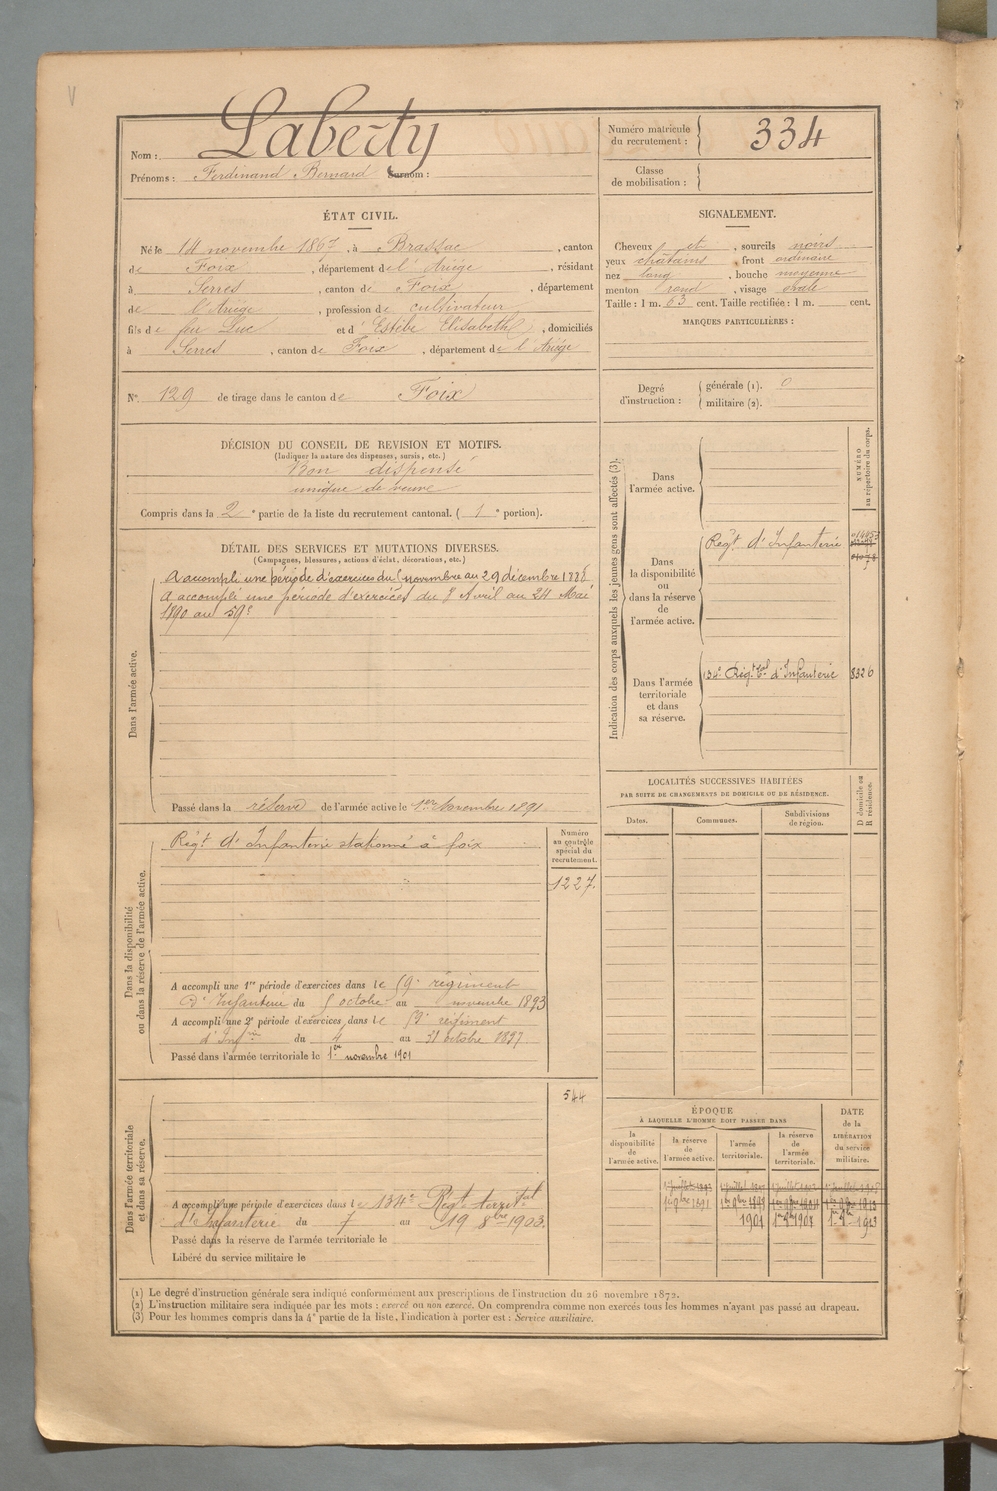 Nom : Laberty
Prénoms : Ferdinand Bernard Surnom :
Numéro matricule du recrutement : 334
Classe de mobilisation :
ÉTAT CIVIL.
Né le 14 novembre 1867, à Brassac, canton
de Foix, département de l'Ariège, résidant
à Serres, canton de Foix, département
de l'Ariège, profession de cultivateur
fils de feu Luc et d'Estèbe Elisabeth, domiciliés
à Serres, canton de Foix, département de l'Ariège
SIGNALEMENT.
Cheveux et, sourcils noirs
yeux châtains, front ordinaire
nez long, bouche moyenne
menton rond, visage ovale
Taille : 1 m. 63 cent. Taille rectifiée : 1 m. cent.
MARQUES PARTICULIÈRES :
N° 129 de tirage dans le canton de Foix
Degré d'instruction : générale (1). 0
militaire (2).
DÉCISION DU CONSEIL DE REVISION ET MOTIFS.
(Indiquer la nature des dispenses, sursis, etc.)
Bon dispensé
unique de veuve
Compris dans la 2e partie de la liste du recrutement cantonal. (1e portion).
DÉTAIL DES SERVICES ET MUTATIONS DIVERSES.
(Campagnes, blessures, actions d'éclat, décorations, etc.)
Dans l'armée active.
A accompli une période d'exercices du novembre au 29 décembre 1888
A accompli une période d'exercices du 8 Avril au 24 Mai
1890 au 59e
Passé dans la réserve de l'armée active le 1er Novembre 1891
Indication des corps auxquels les jeunes gens sont affectés (3).
NUMÉRO au répertoire du corps.
Dans l'armée active.
Dans la disponibilité ou dans la réserve de l'armée active.
Régt d'Infanterie
Dans l'armée territoriale et dans sa réserve.
134e Régt tal d'Infanterie 8326
LOCALITÉS SUCCESSIVES HABITÉES
PAR SUITE DE CHANGEMENTS DE DOMICILE OU DE RÉSIDENCE.
D domicile ou R résidence.
Dates. Communes. Subdivisions de région.
Dans la disponibilité ou dans la réserve de l'armée active.
Régt d'Infanterie stationné à foix
Numéro au contrôle spécial du recrutement.
1227.
A accompli une 1re période d'exercices dans le 59e régiment
d'Infanterie du octobre au novembre 1893
A accompli une 2e période d'exercices dans le 59e régiment
d'Infrie du 4 au 31 octobre 1897
Passé dans l'armée territoriale le 1er novembre 1901
Dans l'armée territoriale et dans sa réserve.
544
A accompli une période d'exercices dans le 134e Régt territal
d'Infanterie du 7 au 19 8bre 1903.
Passé dans la réserve de l'armée territoriale le
Libéré du service militaire le
ÉPOQUE
À LAQUELLE L'HOMME DOIT PASSER DANS
DATE de la LIBÉRATION du service militaire.
la disponibilité de l'armée active. la réserve de l'armée active. l'armée territoriale. la réserve de l'armée territoriale.
1er 9bre 1891
1901 1er 9bre 1907 1er 9bre 1913
(1) Le degré d'instruction générale sera indiqué conformément aux prescriptions de l'instruction du 26 novembre 1872.
(2) L'instruction militaire sera indiquée par les mots : exercé ou non exercé. On comprendra comme non exercés tous les hommes n'ayant pas passé au drapeau.
(3) Pour les hommes compris dans la 4e partie de la liste, l'indication à porter est : Service auxiliaire.